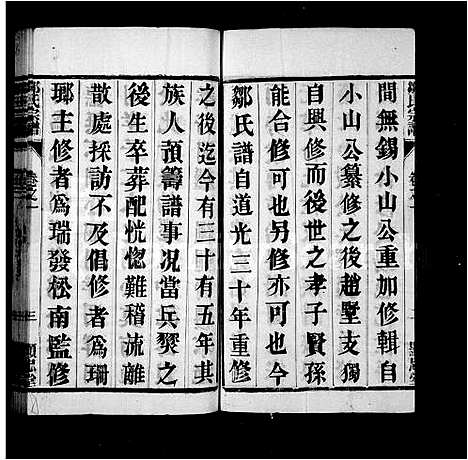 間無錫小山公重加修輯自
小山公纂修之後趙墅支獨
自興修而後世之孝子賢孫
能合修可也另修亦可也今
鄒氏譜自道光三十年重修
之後迄今有三十有五年其
族人預籌譜事况當兵燹之
後生卒葬配恍惚難稽流離
散處採訪不及倡修者為珊
瑯主修者為瑞發松南監修
鄒氏宗譜
卷之一
三